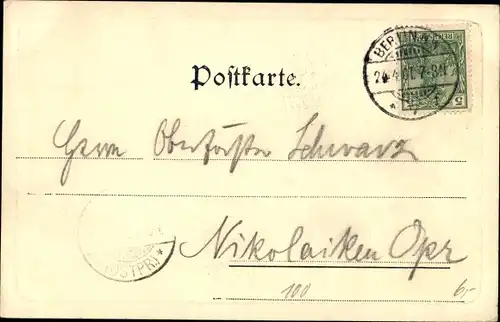 BERLIN
24.4.01. 7-8N.
5
Postkarte.
Herrn Oberförster Schwarz
(OSTPR)
Nikolaiken Opr
100
6,-